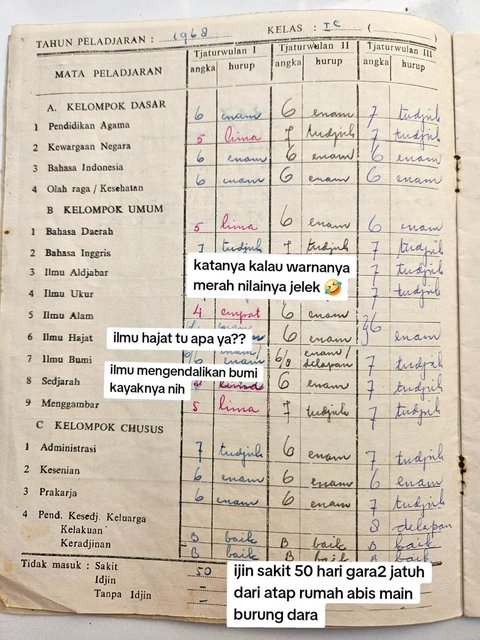 TAHUN PELADJARAN : 1968 KELAS : I C ( )
MATA PELADJARAN Tjaturwulan I Tjaturwulan II Tjaturwulan III
angka hurup angka hurup angka hurup
A. KELOMPOK DASAR
1 Pendidikan Agama 6 enam 6 enam 7 tudjuh
2 Kewargaan Negara 5 lima 7 tudjuh 7 tudjuh
3 Bahasa Indonesia 6 enam 6 enam 6 enam
4 Olah raga / Kesehatan 6 enam 6 enam 6 enam
B KELOMPOK UMUM
1 Bahasa Daerah 5 lima 6 enam 6 enam
2 Bahasa Inggris 7 tudjuh 7 tudjuh 7 tudjuh
3 Ilmu Aldjabar 7 tudjuh
4 Ilmu Ukur 7 tudjuh
katanya kalau warnanya
merah nilainya jelek 🤣
5 Ilmu Alam 4 empat 6 enam
6 Ilmu Hajat 6 enam 6 enam
ilmu hajat tu apa ya??
7 Ilmu Bumi 6/8 enam/delapan 7 tudjuh
ilmu mengendalikan bumi
kayaknya nih
8 Sedjarah lima 6 enam 7 tudjuh
9 Menggambar 5 lima 7 tudjuh 7 tudjuh
C KELOMPOK CHUSUS
1 Administrasi 7 tudjuh 6 enam 7 tudjuh
2 Kesenian 6 enam 6 enam 6 enam
3 Prakarja 6 enam 6 enam 7 tudjuh
4 Pend. Kesedj. Keluarga 8 delapan
Kelakuan B baik B baik B baik
Keradjinan B baik B baik B baik
Tidak masuk : Sakit 50
Idjin -
Tanpa Idjin -
ijin sakit 50 hari gara2 jatuh
dari atap rumah abis main
burung dara